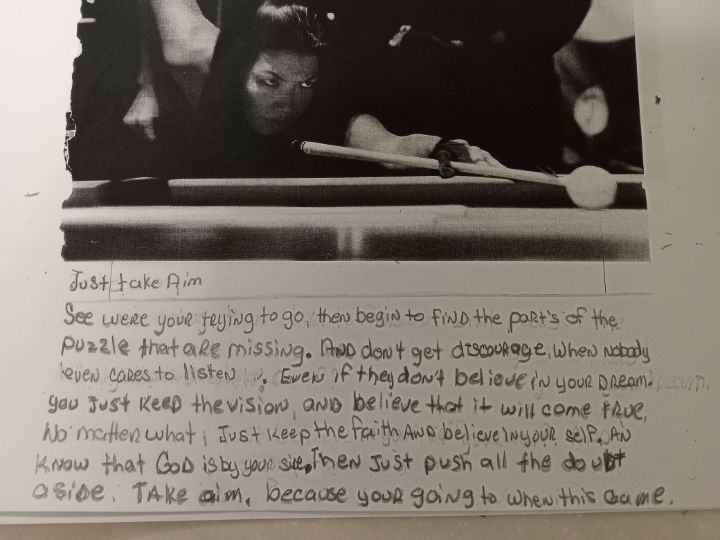 Just take Aim
See were your trying to go, then begin to find the part's of the
puzzle that are missing. And don't get discourage, when nobody
even cares to listen. Even if they don't believe in your Dream.
you Just keep the vision, and believe that it will come true,
No matter what, Just keep the faith And believe in your self. An
know that God is by your side, Then Just push all the doubt
aside. Take aim, because your going to when this Game.